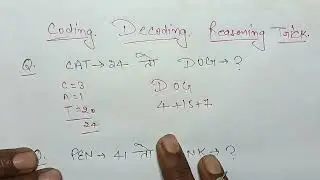 Coding. Decoding. Reasoning Trick.
Q. CAT→24 तो DOG→?
C=3
A=1
T=20
24
DOG
4+15+7
Q. PEN→41 तो NK→?